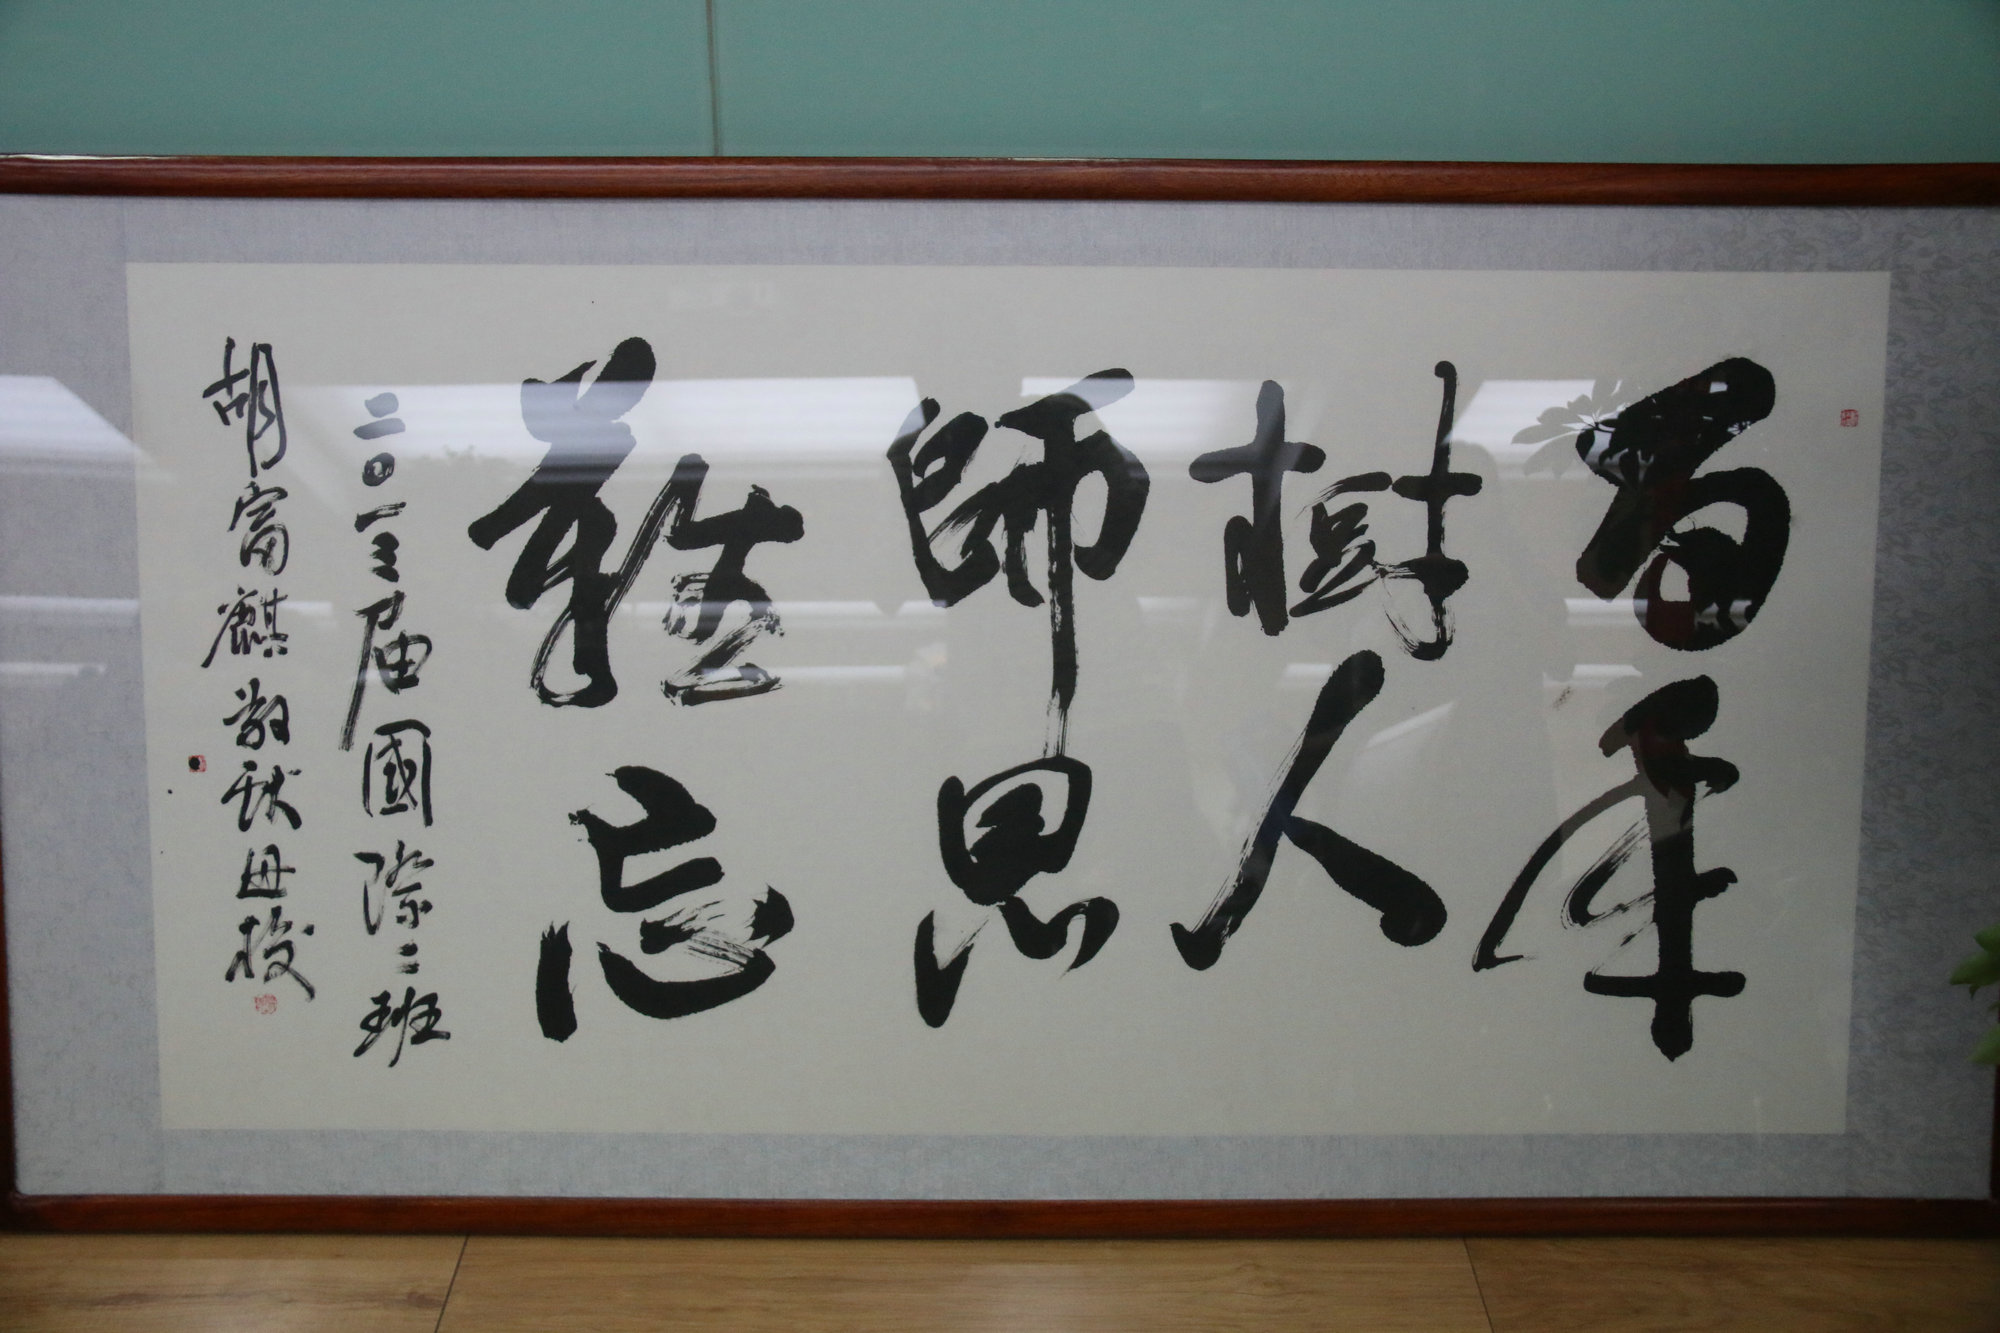 百年
樹人
師恩
難忘
二〇一三届國際二班
胡富麒敬献母校